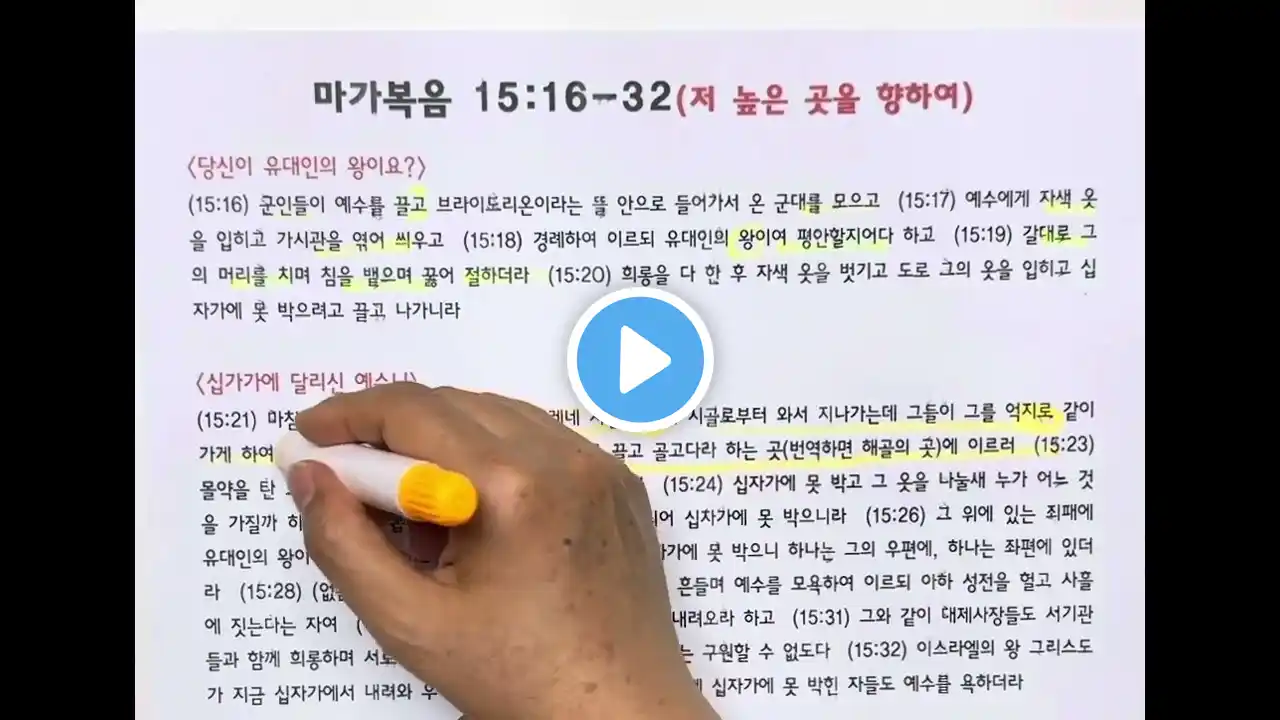 마가복음 15:16-32(저 높은 곳을 향하여)
<당신이 유대인의 왕이요?>
(15:16) 군인들이 예수를 끌고 브라이토리온이라는 뜰 안으로 들어가서 온 군대를 모으고 (15:17) 예수에게 자색 옷
을 입히고 가시관을 엮어 씌우고 (15:18) 경례하여 이르되 유대인의 왕이여 평안할지어다 하고 (15:19) 갈대로 그
의 머리를 치며 침을 뱉으며 꿇어 절하더라 (15:20) 희롱을 다 한 후 자색 옷을 벗기고 도로 그의 옷을 입히고 십
자가에 못 박으려고 끌고 나가니라
<십가가에 달리신
(15:21) 시골로부터 와서 지나가는데 그들이 그를 억지로 같이
가게 하여 끌고 골고다라 하는 곳(번역하면 해골의 곳)에 이르러 (15:23)
몰약을 탄 (15:24) 십자가에 못 박고 그 옷을 나눌새 누가 어느 것
을 가질까 십자가에 못 박으니라 (15:26) 그 위에 있는 죄패에
유대인의 못 박으니 하나는 그의 우편에, 하나는 좌편에 있더
라 (15:28) 흔들며 예수를 모욕하여 이르되 아하 성전을 헐고 사흘
에 짓는다는 자여 내려오라 하고 (15:31) 그와 같이 대제사장들도 서기관
들과 함께 희롱하며 구원할 수 없도다 (15:32) 이스라엘의 왕 그리스도
가 지금 십자가에서 내려와 십자가에 못 박힌 자들도 예수를 욕하더라